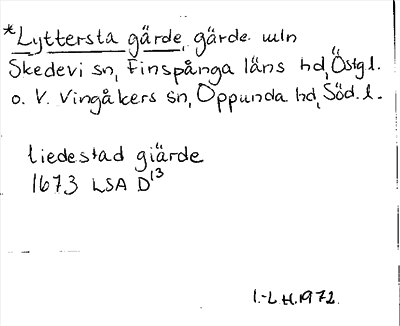 *Lyttersta gärde, gärde mln
Skedevi sn, Finspånga läns hd, Östg l.
o. V. Vingåkers sn, Oppunda hd, Söd. l.
liedestad giärde
1673 LSA D13
I.-L H. 1972.